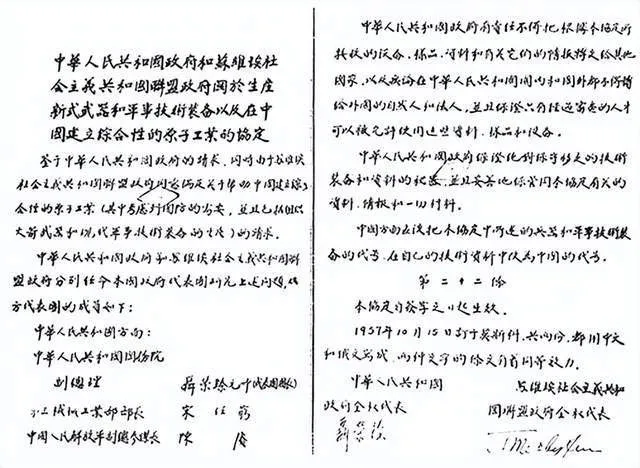 中華人民共和國政府和蘇維埃社
会主義共和國聯盟政府關於生産
新式武器和軍事技術装备以及在中
國建立綜合性的原子工業的協定
鉴于中華人民共和國政府的請求，同时由于蘇維埃
社会主義共和國聯盟政府
合性的原子工業（其中考慮到國防的需要，並且已
火箭武器和現代軍事技術装备的生産）的請求。
中華人民共和國政府和蘇維埃社会主義共和國聯
盟政府分别任命本國政府代表團研究上述问題，
方代表團的成員如下：
中華人民共和國方面：
中華人民共和國國務院
副總理 聶榮臻元帅（代表團團長）
第二機械工業部部長 宋任窮
中國人民解放軍副總参謀長 陳賡
中華人民共和國政府有責任不得把根據本協定所
接收的设备、样品、資料和有关它们的情报轉交给其他
國家，以及無論在中華人民共和國國内和國外都不得轉
给外國的自然人和法人，並且保證只有经过審查的人才
可以被允許使用这些資料、样品和设备。
中華人民共和國政府保證绝对保守移交的技術
装备和資料的秘密，並且妥善地保管同本協定有関的
資料、情报和一切材料。
中國方面应该把本協定中所述的兵器和軍事技術装
备的代号，在自己的技術資料中改为中國的代号。
第二十二條
本協定自簽字之日起生效。
1957年10月15日訂于莫斯科，共兩份，都用中文
和俄文寫成，兩种文字的條文有着同等效力。
中華人民共和國
政府全权代表
聶榮臻
蘇維埃社会主義共和
國聯盟政府全权代表